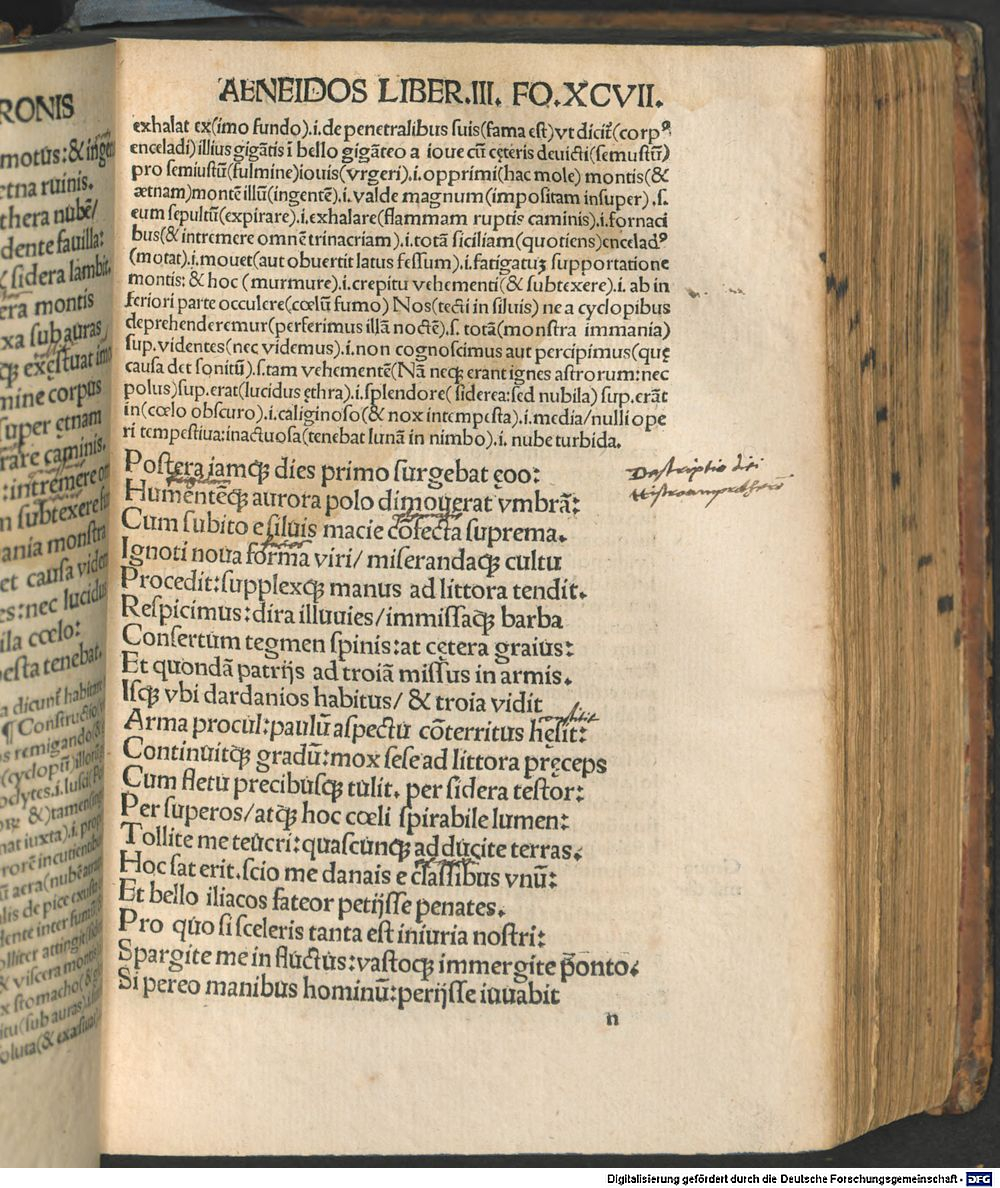 RONIS
motus: & inge
etna ruinis.
thera nubē/
dente fauilla:
& sidera lambit.
era montis
xa sub auras
qꝫ exęstuat imo
mine corpus
super ętnam
rare caminis.
: intremere om
n subtexere fu
ania monstra
et causa viden
es: nec lucidus
ila cœlo:
pesta tenebat.
AENEIDOS LIBER.III. FO.XCVII.
exhalat ex(imo fundo).i.de penetralibus suis(fama est)vt dicit̃(corpꝰ
enceladi)illius gigātis ī bello gigāteo a ioue cū cęteris deuicti(semustū)
pro semiustū(fulmine)iouis(vrgeri).i.opprimi(hac mole) montis(&
ætnam)montē illū(ingentē).i.valde magnum(impositam insuper).s.
eum sepultū(expirare).i.exhalare(flammam ruptis caminis).i.fornaci
bus(& intremere omnē trinacriam).i.totā siciliam(quotiens)enceladꝰ
(motat).i.mouet(aut obuertit latus fessum).i.fatigatuꝫ supportatione
montis: & hoc (murmure).i.crepitu vehementi(& subtexere).i. ab in
feriori parte occulere(cœlū fumo) Nos(tecti in siluis) ne a cyclopibus
deprehenderemur(perferimus illā noctē).s. totā(monstra immania)
sup.videntes(nec videmus).i.non cognoscimus aut percipimus(quę
causa det sonitū).s.tam vehementē(Nā neqꝫ erant ignes astrorum:nec
polus)sup.erat(lucidus ęthra).i.splendore( siderea:sed nubila) sup.erāt
in(cœlo obscuro).i.caliginoso(& nox intempesta).i.media/nulli ope
ri tempestiua:inactuosa(tenebat lunā in nimbo).i. nube turbida.
Postera iamqꝫ dies primo surgebat ęoo:
Humentēqꝫ aurora polo dimouerat vmbrā:
Cum subito e siluis macie cōfecta suprema.
Ignoti noua forma viri/ miserandaqꝫ cultu
Procedit:supplexqꝫ manus ad littora tendit.
Respicimus:dira illuuies/immissaqꝫ barba
Consertum tegmen spinis:at cętera graius:
Et quondā patrijs ad troiā missus in armis.
Isqꝫ vbi dardanios habitus/ & troia vidit
Arma procul:paulū aspectu cōterritus hęsit:
Continuitqꝫ gradū:mox sese ad littora pręceps
Cum fletu precibusqꝫ tulit. per sidera testor:
Per superos/atqꝫ hoc cœli spirabile lumen:
Tollite me teucri:quascunqꝫ adducite terras.
Hoc sat erit.scio me danais e classibus vnū:
Et bello iliacos fateor petijsse penates.
Pro quo si sceleris tanta est iniuria nostri:
Spargite me in fluctus:vastoqꝫ immergite ponto.
Si pereo manibus hominū:perijsse iuuabit
n
Digitalisierung gefördert durch die Deutsche Forschungsgemeinschaft - DFG